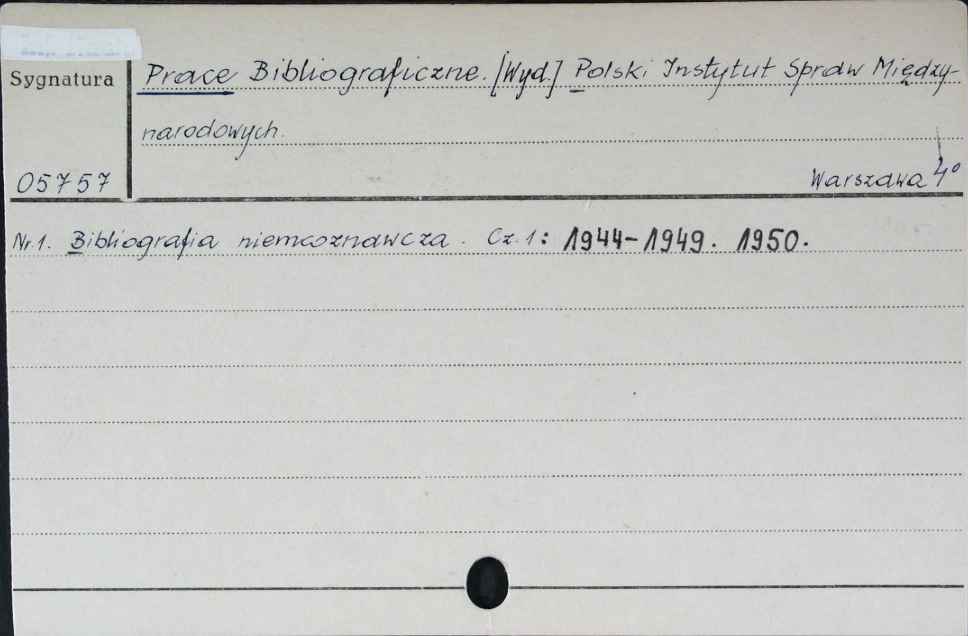 Sygnatura
Prace Bibliograficzne. [Wyd.] Polski Instytut Spraw Między-
narodowych.
05757
Warszawa 4°
Nr 1. Bibliografia niemcoznawcza. Cz. 1: 1944-1949. 1950.